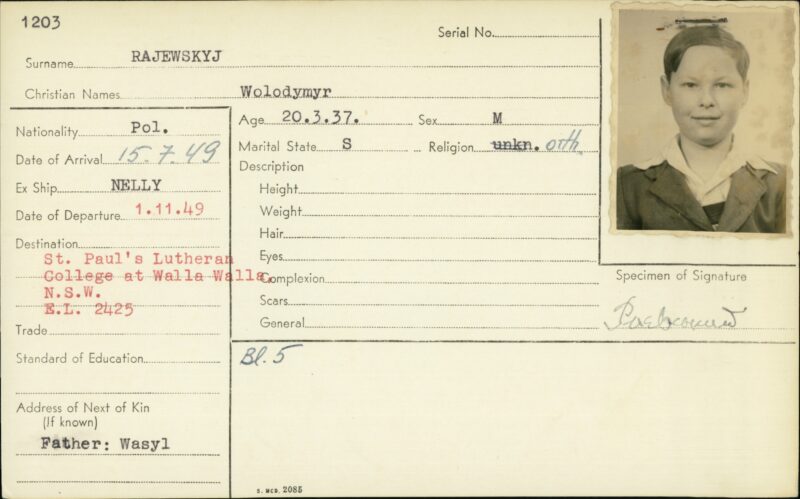 1203
Serial No.
Surname RAJEWSKYJ
Christian Names Wolodymyr
Nationality Pol.
Age 20.3.37. Sex M
Date of Arrival 15.7.49
Marital State S Religion unkn. orth.
Ex Ship NELLY
Description
Height
Date of Departure 1.11.49
Weight
Hair
Destination
St. Paul's Lutheran
College at Walla Walla
N.S.W.
E.L. 2425
Eyes
Complexion
Scars
General
Specimen of Signature
Trade
Standard of Education
Bl. 5
Address of Next of Kin
(If known)
Father: Wasyl
S. MCD. 2085